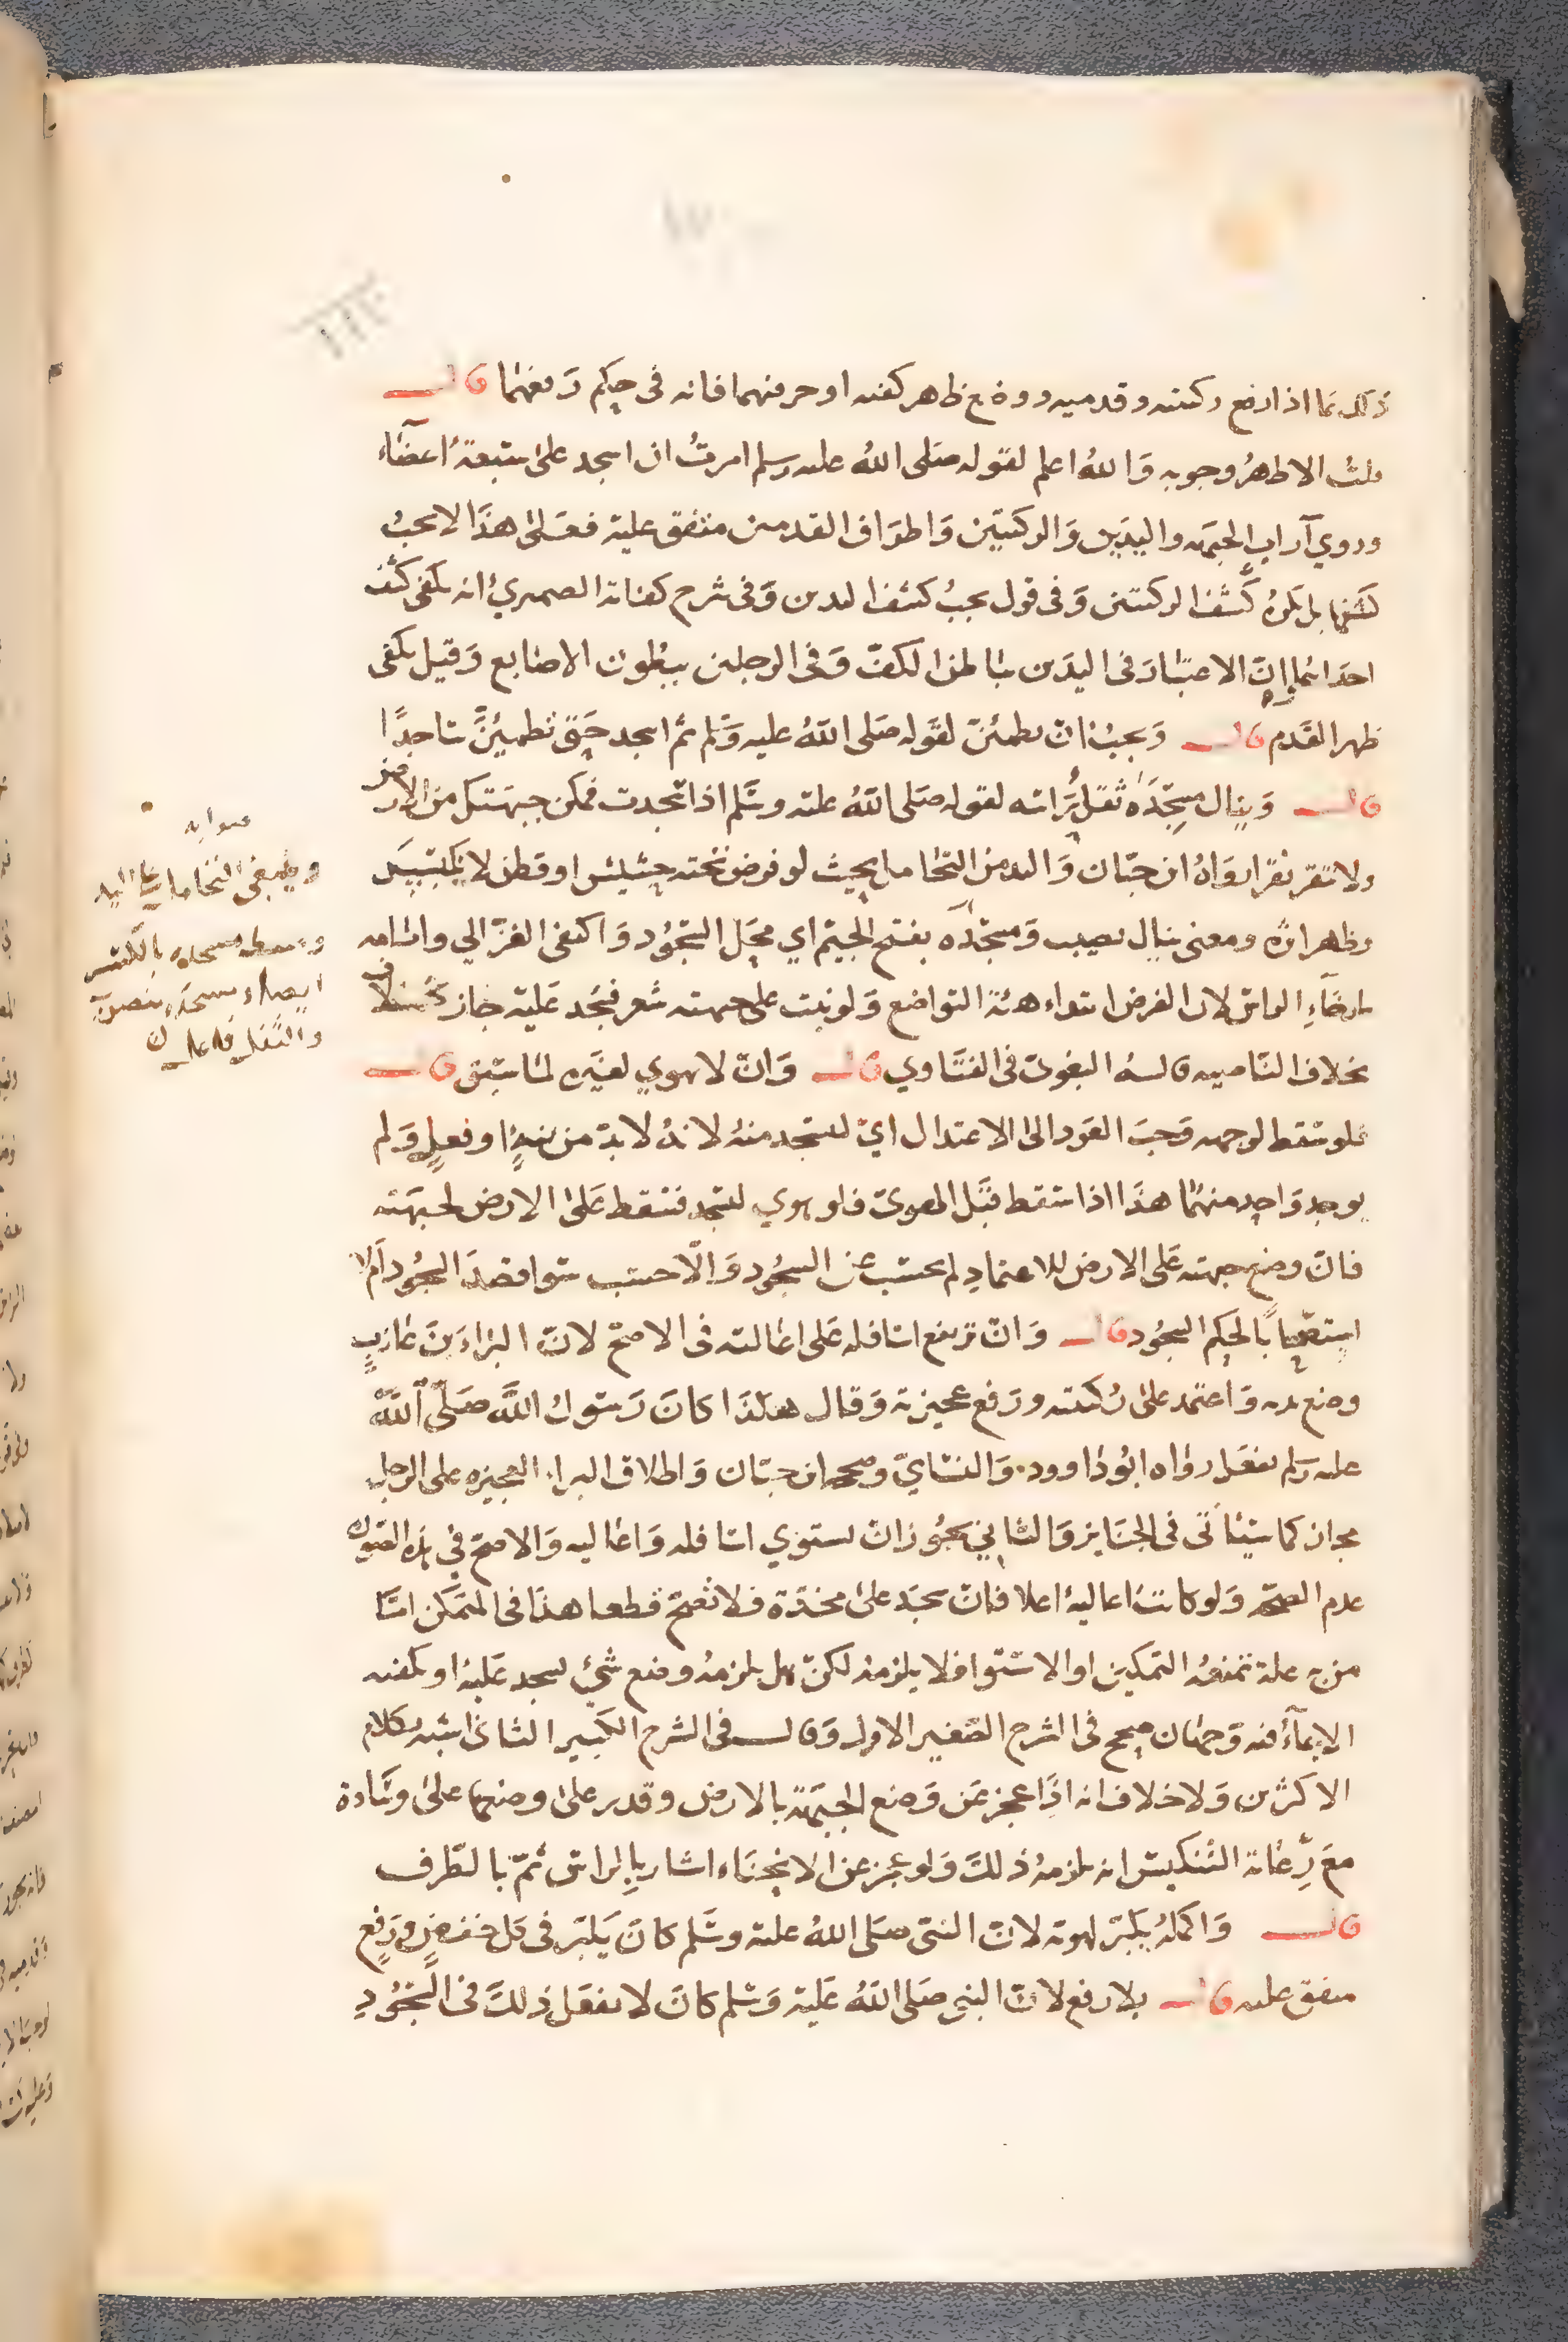 ذلك ما اذا رفع ركبتيه وقدميه ووضع ظاهر كفيه او حرفهما فانه في حكم رفعهما قال
قلت الاظهر وجوبه والله اعلم لقوله صلى الله عليه وسلم امرت ان اسجد على سبعة اعضاء
وروي آراب الجبهة واليدين والركبتين واطراف القدمين متفق عليه فعلى هذا لا يجب
كشفها بل يكره كشف الركبتين وفي قول يجب كشف اليدين وفي شرح كفاية الصميري انه يكفي كشف
احداهما ان الاعتبار في اليدين بباطن الكف وفي الرجلين ببطون الاصابع وقيل يكفي
ظهر القدم قال ويجب ان يطمئن لقوله صلى الله عليه وسلم ثم اسجد حتى تطمئن ساجدا
قال وينال مسجده ثقل راسه لقوله صلى الله عليه وسلم اذا سجدت فمكن جبهتك من الارض
ولا تنقر نقرا رواه ابن حبان والمد من التحامل بحيث لو فرض تحته حشيش او قطن لا نكبس
وظهر اثره ومعنى ينال يصيب ومسجده بفتح الجيم اي محل السجود واكتفى الغزالي وامامه
بارخاء الراس لان الغرض ابداء هيئة التواضع ولو نبت على جبهته شعر فسجد عليه جاز
بخلاف الناصيه قاله البغوي في الفتاوي قال وان لا يهوي لغيره لما سبق قال
فلو سقط لوجهه وجب العود الى الاعتدال اي ليسجد منه لانه لا بد من نية او فعل ولم
يوجد واحد منهما هذا اذا سقط قبل الهوي فلو هوي ليسجد فسقط على الارض لجبهته
فان وضع جبهته على الارض للاعتماد لم يحسب عن السجود والا حسب سوا قصد السجود ام لا
استصحابا لحكم السجود قال وان ترتفع اسافله على اعاليه في الاصح لان البراء بن عازب
وضع يديه واعتمد على ركبتيه ورفع عجيزته وقال هكذا كان رسول الله صلى الله
عليه وسلم يفعل رواه ابو داوود والنساي وصححه ابن حبان واطلاق البراء العجيزه على الرجل
مجاز كما سياتي في الجنايز والثاني يجوز ان تستوي اسافله واعاليه والاصح في هذه الصورة
عدم الصحة ولو كانت اعاليه اعلا فان سجد على مخدة فلا تصح قطعا هذا في المتمكن اما
من به علة تمنعه التمكين او الاستوا فلا يلزمه لكن هل يلزمه وضع شيء ليسجد عليه او يكفيه
الايماء فيه وجهان صحح في الشرح الصغير الاول وقال في الشرح الكبير الثاني اشبه بكلام
الاكثرين ولا خلاف انه اذا عجز عن وضع الجبهة بالارض وقدر على وضعها على وسادة
مع رعاية التنكيس انه يلزمه ذلك ولو عجز عن الانحناء اشار بالراس ثم بالطرف
قال واكمله يكبر لهويه لان النبي صلى الله عليه وسلم كان يكبر في كل خفض ورفع
متفق عليه قال بلا رفع لان النبي صلى الله عليه وسلم كان لا يفعل ذلك في السجود
صوابه